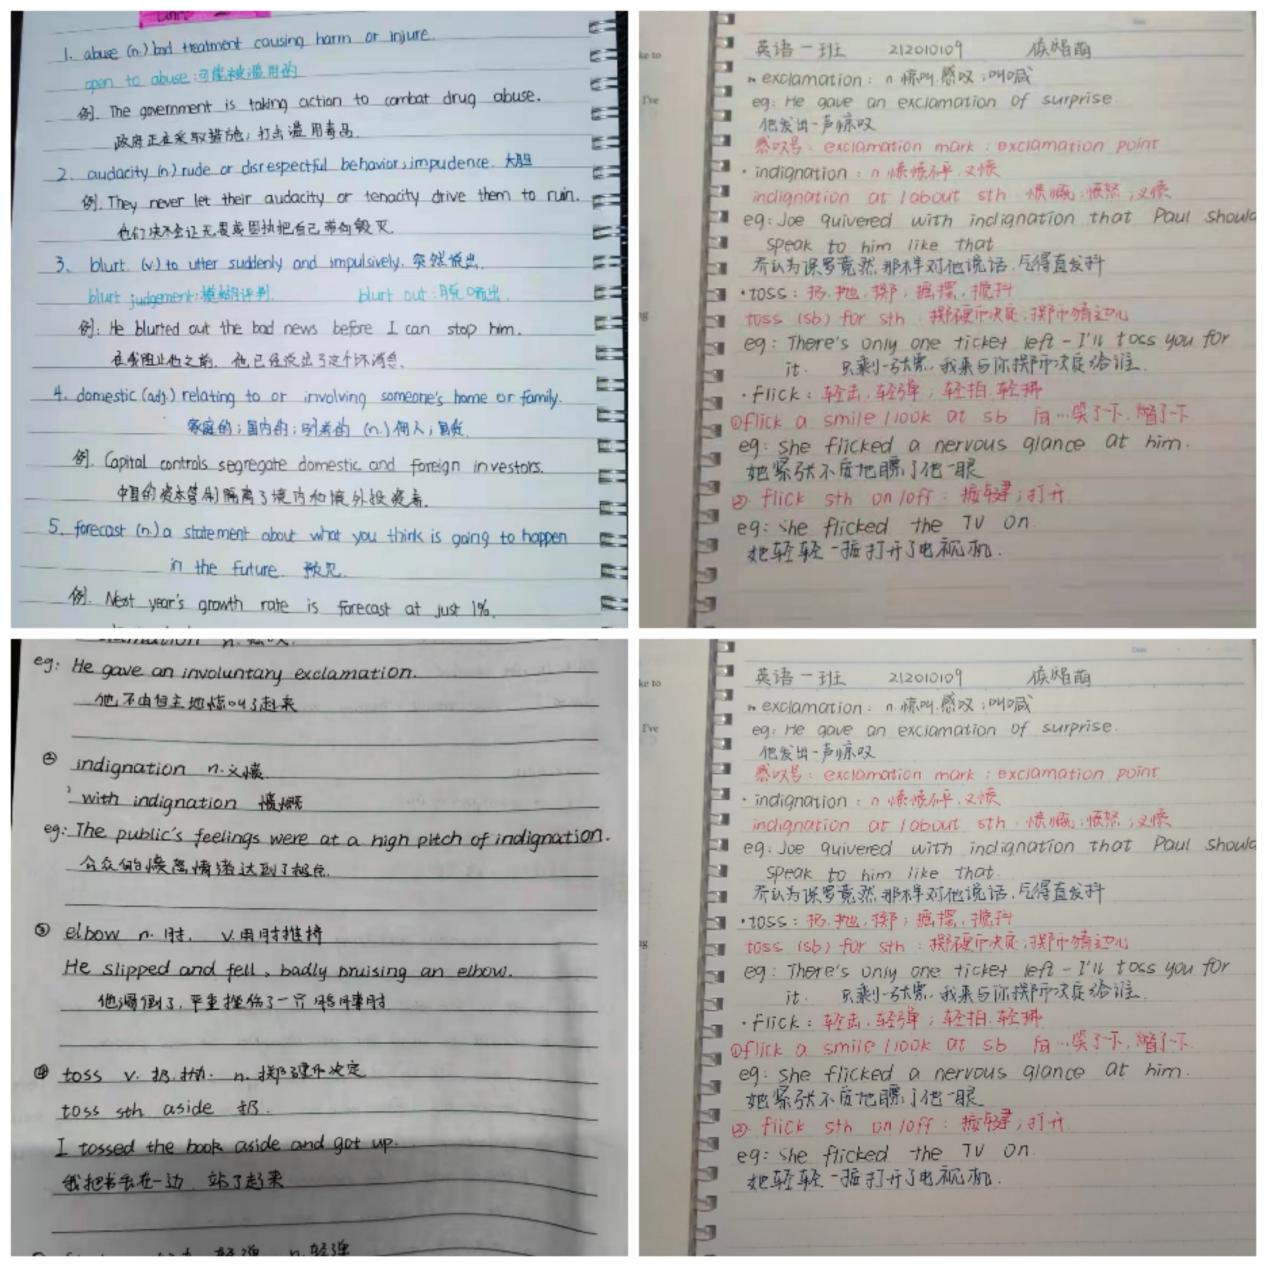 1. abuse (n.) bad treatment causing harm or injure.
open to abuse:可能被滥用的
例. The government is taking action to combat drug abuse.
政府正在采取措施,打击滥用毒品
2. audacity (n) rude or disrespectful behavior, impudence. 大胆
例. They never let their audacity or tenacity drive them to ruin.
他们决不会让无畏或固执把自己带向毁灭.
3. blurt. (v.) to utter suddenly and impulsively. 突然说出.
blurt judgement:模糊评判. blurt out:脱口而出.
例: He blurted out the bad news before I can stop him.
在我阻止他之前, 他已经说出了这个坏消息.
4. domestic (adj.) relating to or involving someone's home or family.
家庭的;国内的; (n.)佣人;
例. Capital controls segregate domestic and foreign investors.
中国的资本管制隔离了境内和境外投资者.
5. forecast (n.) a statement about what you think is going to happen
in the future. 预见.
例. Next year's growth rate is forecast at just 1%.
英语一班 212010109
exclamation: n 惊叫.感叹;叫喊
eg: He gave an exclamation of surprise.
他发出一声惊叹
感叹号: exclamation mark ; exclamation point
· indignation : n 愤愤不平.义愤
indignation at / about sth 愤慨;愤怒;义愤
eg: Joe quivered with indignation that Paul should
speak to him like that
乔认为保罗竟然那样对他说话,气得直发抖
· toss: 扔.抛.掷;摇摆.搅抖
toss (sb) for sth : 掷硬币决定;掷币猜边儿
eg: There's only one ticket left - I'll toss you for
it. 只剩一张票.我来与你掷币决定给谁.
· flick: 轻击.轻弹;轻拍.轻拂
①flick a smile / look at sb 向…笑了一下,瞄了一下
eg: She flicked a nervous glance at him.
她紧张不安地瞟了他一眼
② flick sth on/off : 按键;打开
eg: She flicked the TV on.
她轻轻一按打开了电视机.
eg: He gave an involuntary exclamation.
他不由自主地惊叫了起来
② indignation n.义愤.
with indignation 愤慨
eg: The public's feelings were at a high pitch of indignation.
公众的愤慨情绪达到了极点.
③ elbow n. 肘. v.用肘推挤
He slipped and fell, badly bruising an elbow.
他滑倒了,严重挫伤了一只胳膊肘
④ toss v. 扔.抛. n. 掷硬币决定
toss sth aside 扔.
I tossed the book aside and got up.
我把书丢在一边 站了起来
轻弹 n.轻弹
英语一班 212010109
exclamation: n 惊叫.感叹;叫喊
eg: He gave an exclamation of surprise.
他发出一声惊叹
感叹号: exclamation mark ; exclamation point
· indignation : n 愤愤不平.义愤
indignation at / about sth 愤慨;愤怒;义愤
eg: Joe quivered with indignation that Paul should
speak to him like that.
乔认为保罗竟然那样对他说话,气得直发抖
· toss: 扔.抛.掷;摇摆.搅抖
toss (sb) for sth : 掷硬币决定;掷币猜边儿
eg: There's only one ticket left - I'll toss you for
it. 只剩一张票.我来与你掷币决定给谁.
· flick: 轻击.轻弹;轻拍.轻拂
①flick a smile / look at sb 向…笑了一下,瞄了一下
eg: She flicked a nervous glance at him.
她紧张不安地瞟了他一眼
② flick sth on/off : 按键;打开
eg: She flicked the TV on.
她轻轻一按打开了电视机.